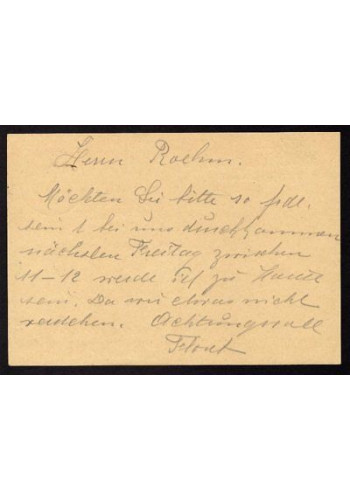 Herrn Roehm.
Möchten Sie bitte so
sein bei uns
nächsten Freitag zwischen
11-12 werde zu Hause
sein. Da wir etwas nicht
verstehen. Achtungsvoll